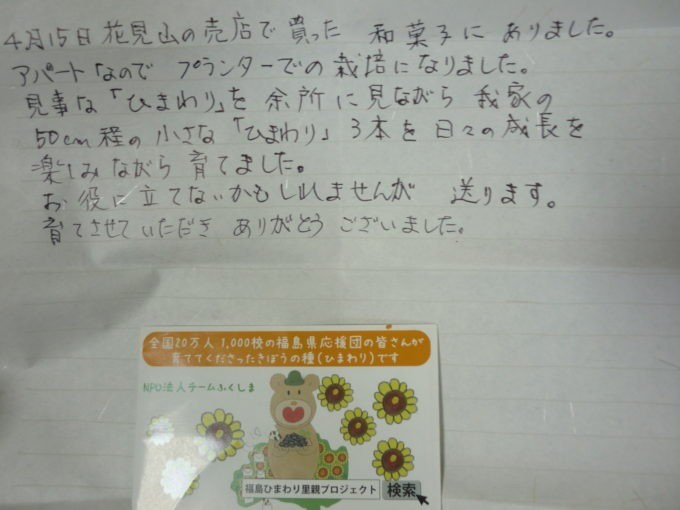 4月15日 花見山の売店で 買った 和菓子に ありました。
アパートなので プランターでの 栽培に なりました。
見事な「ひまわり」を 余所に 見ながら 我家の
50cm程の 小さな「ひまわり」 3本を 日々の 成長を
楽しみながら 育てました。
お役に立てないかもしれませんが 送ります。
育てさせていただき ありがとう ございました。
全国20万人 1,000校の福島県応援団の皆さんが
育ててくださったきぼうの種(ひまわり)です
NPO法人チームふくしま
福島ひまわり里親プロジェクト 検索